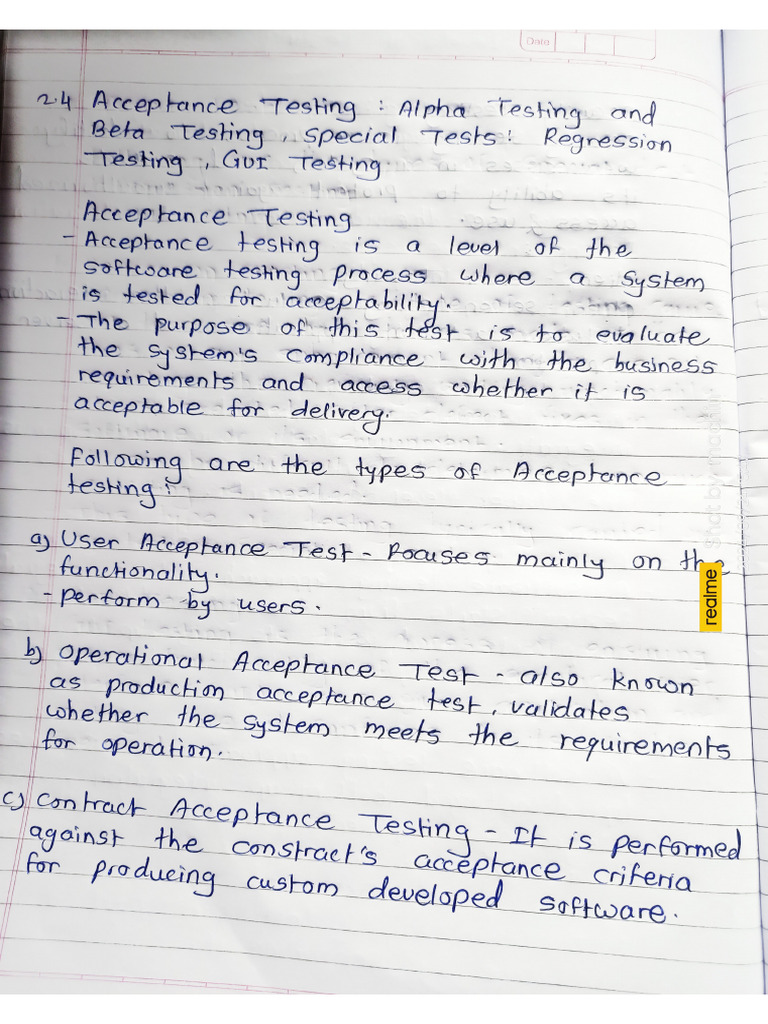 Date
2.4 Acceptance Testing : Alpha Testing and
Beta Testing, Special Tests: Regression
Testing, GUI Testing
Acceptance Testing
- Acceptance testing is a level of the
software testing process where a system
is tested for acceptability.
- The purpose of this test is to evaluate
the system's compliance with the business
requirements and access whether it is
acceptable for delivery.
Following are the types of Acceptance
testing:
a) User Acceptance Test - Focuses mainly on the
functionality.
- perform by users.
b) Operational Acceptance Test - also known
as production acceptance test, validates
whether the system meets the requirements
for operation.
c) Contract Acceptance Testing - It is performed
against the constract's acceptance criteria
for producing custom developed software.
realme
Shot by